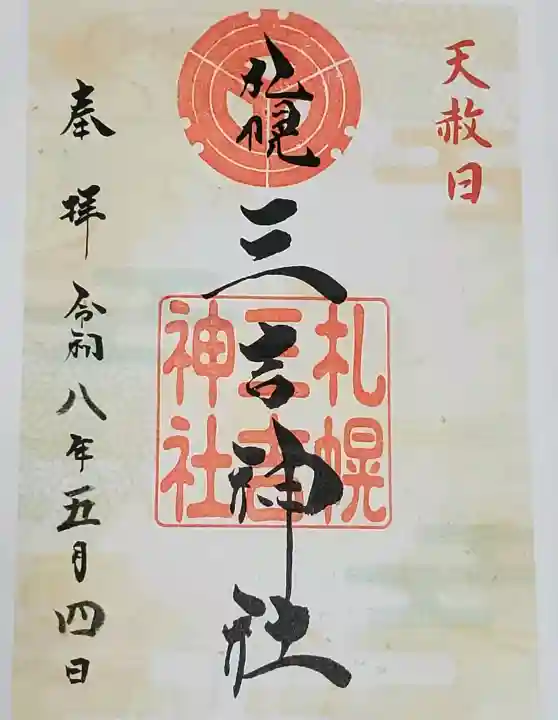 天赦日
札幌
三吉神社
札幌
三吉
神社
奉拝 令和八年五月四日